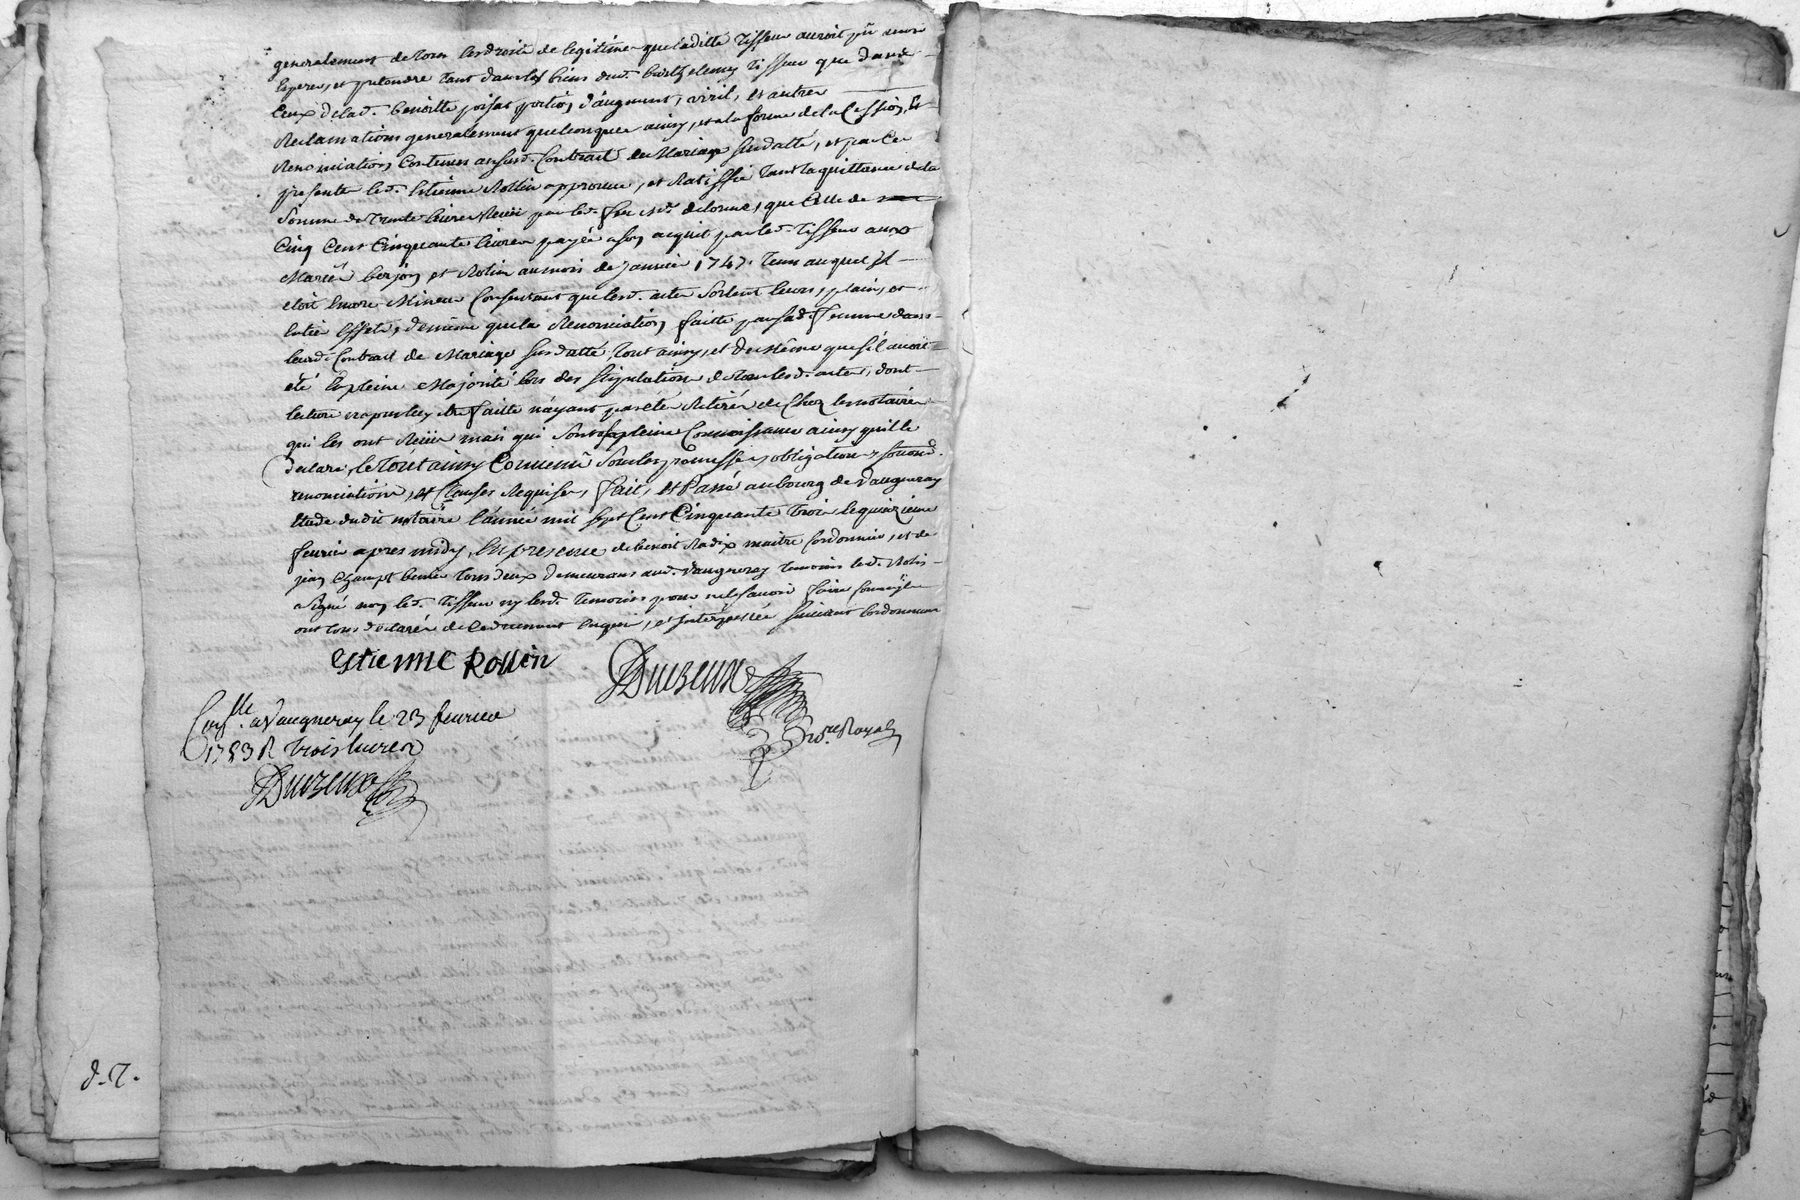 generalement de tous les droits de legitime que laditte Tisseur auroit pû avoir
esperer, et pretendre tant dans les biens dud. barthelemy Tisseur que dans
Ceux de lad. benoitte portion d'augment, viril, et autres
Reclamations generalement quelconques ainsy, et a la forme de la Cession, et
Renonciation Contenues aususd. Contrait de Mariage susdatté, et par les
presentes led. Estienne Rollin approuve, et Ratiffie tant la quittance de la
somme de Trente livres Receüe par led. feu Me. delorme, que Celle de
Cinq Cent Cinquante livres payée a son acquit par led. Tisseur aux
Mariés berjon et Rolin au mois de Janvier 1747. tems auquel Il
etoit encore Mineur Consentant que lesd. actes sortent leurs plain, et
Entier Effets, de même que la Renonciation faitte par sad. femme dans
leurd. Contrait de Mariage susdatté, tout ainsy, et de Même que s'il avoit
eté En pleine Majorité lors des stipulations de tous lesd. actes, dont
lecture n'a pu luy etre faitte n'ayant pas eté Retirés de Chez les notaires
qui les ont Receüs mais qui sont a sa pleine Connoissance ainsy qu'il le
declare, le Tout ainsy Convenû sous les promesses, obligations, soumd.
renonciations, et Clauses Requises, fait, et Passé au bourg de Vaugneray
Etude dudit notaire l'année mil sept Cent Cinquante trois le quinzieme
fevrier apres midy, En presence de benoit Radix maitre Cordonnier, et de
jean tous deux demeurans aud. Vaugneray temoins led. Rolin
a signé non led. Tisseur ny lesd. temoins pour ne le savoir faire comme ils
ont tous declarés de Ce duement enquis, et interpellés suivant l'ordonnance
Estienne Rollin
Duvzeux
Conlle. a Vaugneray le 23 fevrier
1753 R trois livres
Duvzeux
Nore. Royal
d. T.